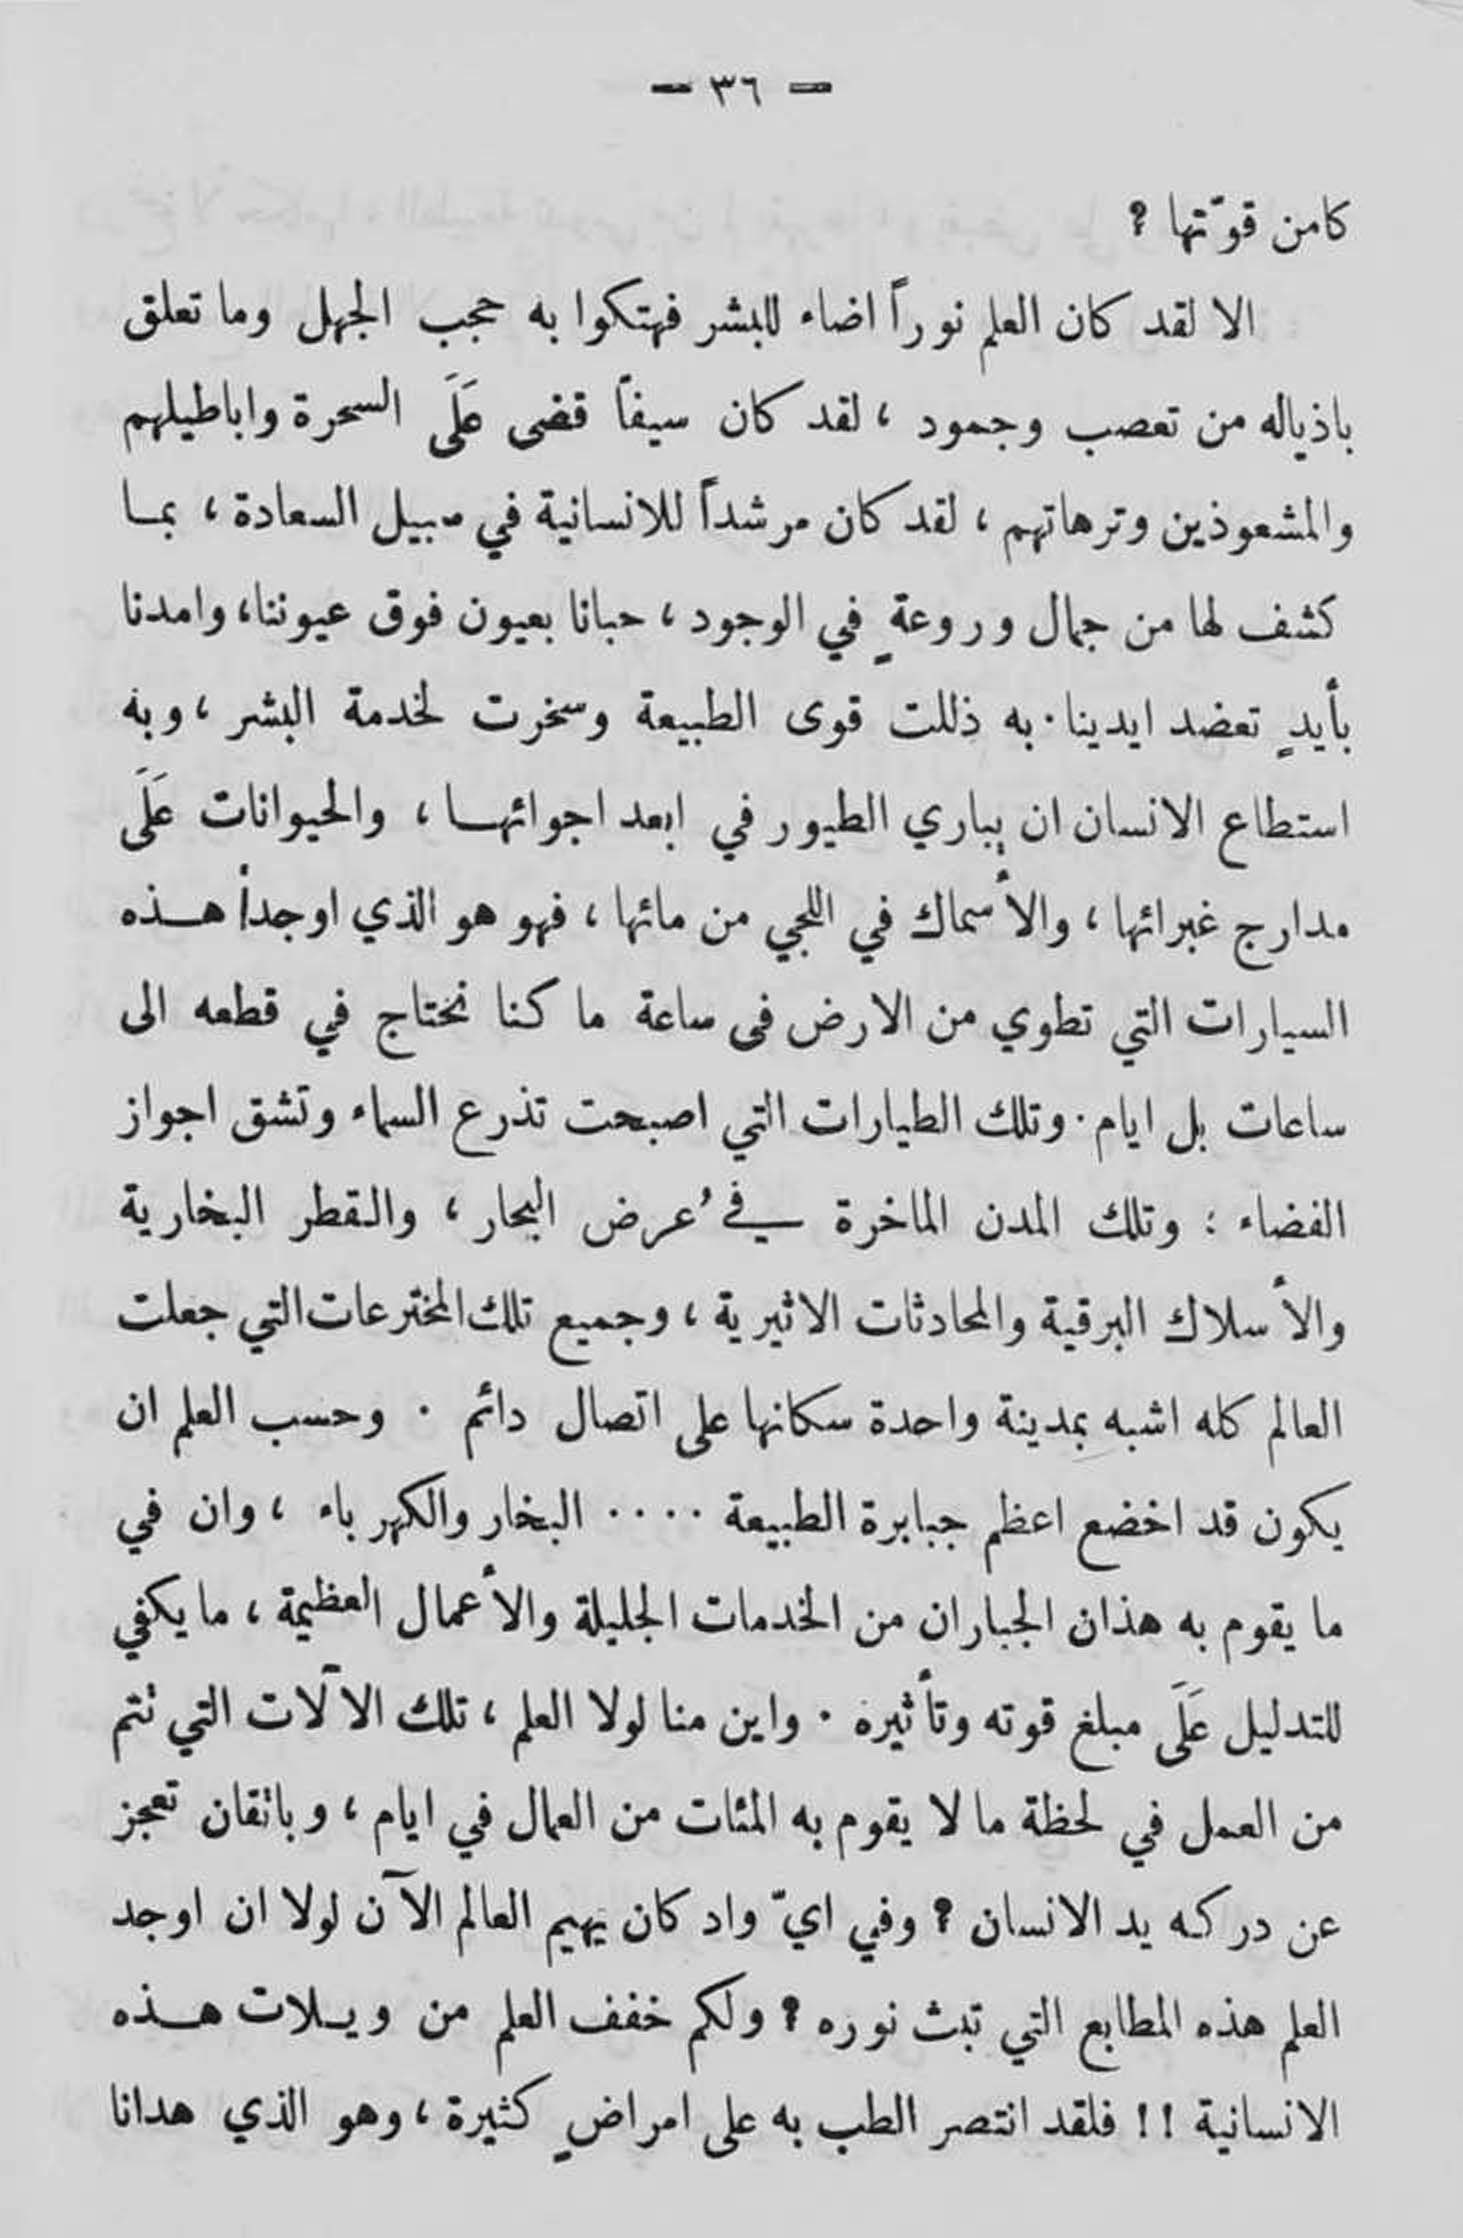 — ٣٦ —
كامن قوّتها ؟
الا لقد كان العلم نوراً اضاء للبشر فهتكوا به حجب الجهل وما تعلق
باذياله من تعصب وجمود ، لقد كان سيفاً قضى عَلَى السحرة واباطيلهم
والمشعوذين وترهاتهم ، لقد كان مرشداً للانسانية في سبيل السعادة ، بمـا
كشف لها من جمال وروعةٍ في الوجود ، حبانا بعيون فوق عيوننا، وامدنا
بأيدٍ تعضد ايدينا . به ذللت قوى الطبيعة وسخرت لخدمة البشر ، وبه
استطاع الانسان ان يباري الطيور في ابعد اجوائهـا ، والحيوانات عَلَى
مدارج غبرائها ، والأسماك في اللجي من مائها ، فهو هو الذي اوجدأ هـذه
السيارات التي تطوي من الارض فى ساعة ما كنا نحتاج في قطعه الى
ساعات بل ايام . وتلك الطيارات التي اصبحت تذرع السماء وتشق اجواز
الفضاء ؛ وتلك المدن الماخرة في ُعرض البحار ، والقطر البخارية
والأسلاك البرقية والمحادثات الاثيرية ، وجميع تلك المخترعات التي جعلت
العالم كله اشبه بمدينة واحدة سكانها على اتصال دائم . وحسب العلم ان
يكون قد اخضع اعظم جبابرة الطبيعة .... البخار والكهرباء ، وان في
ما يقوم به هذان الجباران من الخدمات الجليلة والأعمال العظيمة ، ما يكفي
للتدليل عَلَى مبلغ قوته وتأثيره . واين منا لولا العلم ، تلك الآلات التي تتم
من العمل في لحظة ما لا يقوم به المئات من العمال في ايام ، وباتقان تعجز
عن دركه يد الانسان ؟ وفي ايّ واد كان يهيم العالم الآن لولا ان اوجد
العلم هذه المطابع التي تبث نوره ؟ ولكم خفف العلم من ويـلات هـذه
الانسانية !! فلقد انتصر الطب به على امراضٍ كثيرة ، وهو الذي هدانا